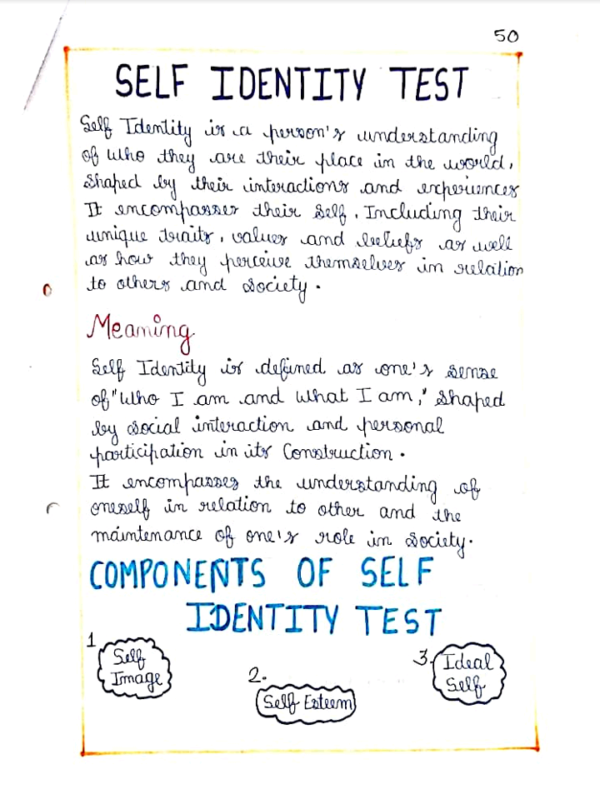 50
SELF IDENTITY TEST
Self Identity is a person's understanding
of who they are their place in the world,
shaped by their interactions and experiences
It encompasses their self. Including their
unique traits, values and beliefs as well
as how they perceive themselves in relation
to others and society.
Meaning
Self Identity is defined as one's sense
of "Who I am and what I am," shaped
by social interaction and personal
participation in its Construction.
It encompasses the understanding of
oneself in relation to other and the
maintenance of one's role in society.
COMPONENTS OF SELF
IDENTITY TEST
1
Self
Image
2.
Self Esteem
3.
Ideal
Self